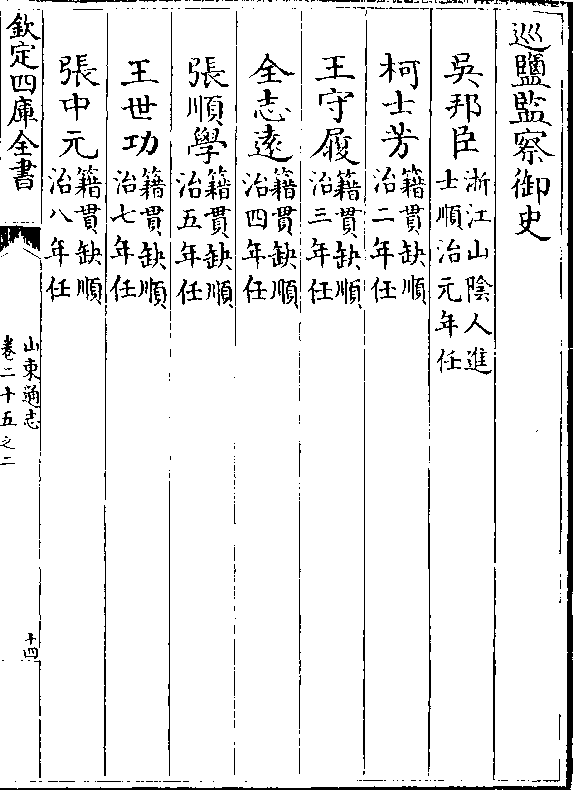 巡鹽監察御史
吳邦臣浙江山陰人進士順治元年任
柯士芳籍貫缺順治二年任
王守履籍貫缺順治三年任
全志遠籍貫缺順治四年任
張順學籍貫缺順治五年任
王世功籍貫缺順治七年任
張中元籍貫缺順治八年任
欽定四庫全書
山東通志
卷二十五之二
十四